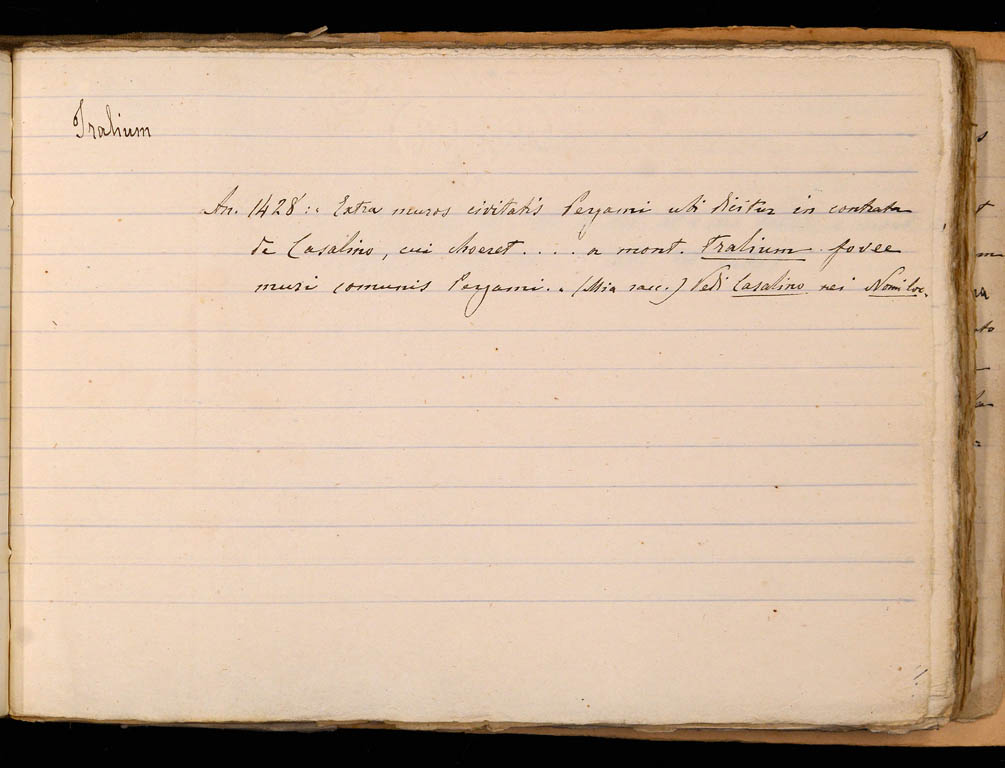 Tralium
An. 1428: Extra muros civitatis Pergami ubi dicitur in contrata
de Casalino, cui choeret .... a mont. Tralium fovee
muri comunis Pergami.. (Mia racc.) Vedi Casalino nei Nomi loc.